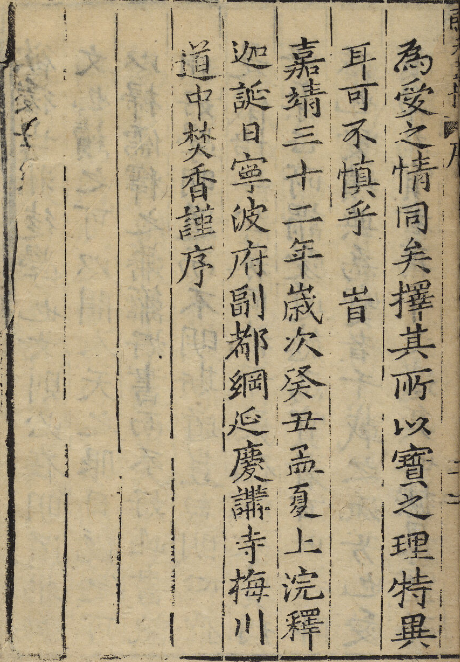 為愛之情同矣擇其所以寶之理特異
耳可不慎乎 旹
嘉靖三十二年歲次癸丑孟夏上浣釋
迦誕日寧波府副都綱延慶講寺梅川
道中焚香謹序